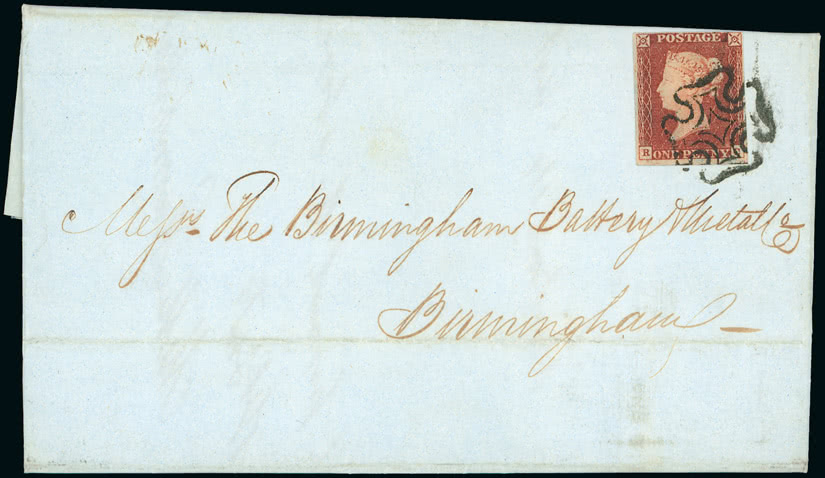 POSTAGE
R
ONE PENNY
Messrs The Birmingham Battery & Metal Co
Birmingham